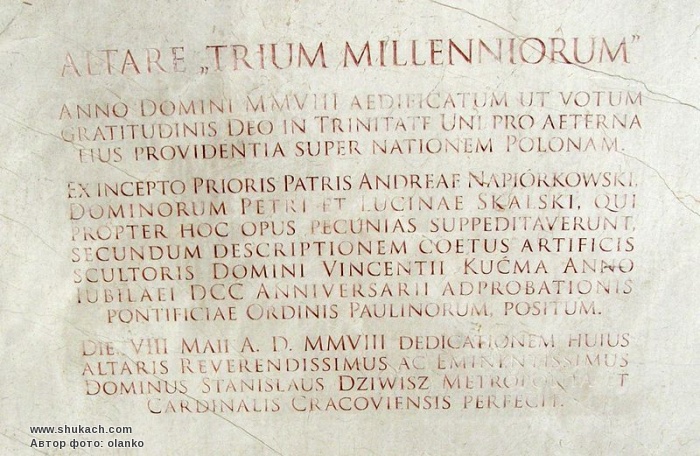 ALTARE „TRIUM MILLENNIORUM”
ANNO DOMINI MMVIII AEDIFICATUM UT VOTUM
GRATITUDINIS DEO IN TRINITATE UNI PRO AETERNA
EIUS PROVIDENTIA SUPER NATIONEM POLONAM.
EX INCEPTO PRIORIS PATRIS ANDREAE NAPIÓRKOWSKI,
DOMINORUM PETRI ET LUCINAE SKALSKI, QUI
PROPTER HOC OPUS PECUNIAS SUPPEDITAVERUNT,
SECUNDUM DESCRIPTIONEM COETUS ARTIFICIS
SCULTORIS DOMINI VINCENTII KUĆMA ANNO
IUBILAEI DCC ANNIVERSARII ADPROBATIONIS
PONTIFICIAE ORDINIS PAULINORUM, POSITUM.
DIE VIII MAII A. D. MMVIII DEDICATIONEM HUIUS
ALTARIS REVERENDISSIMUS AC EMINENTISSIMUS
DOMINUS STANISLAUS DZIWISZ
CARDINALIS CRACOVIENSIS PERFECIT.
www.shukach.com
Автор фото: olanko